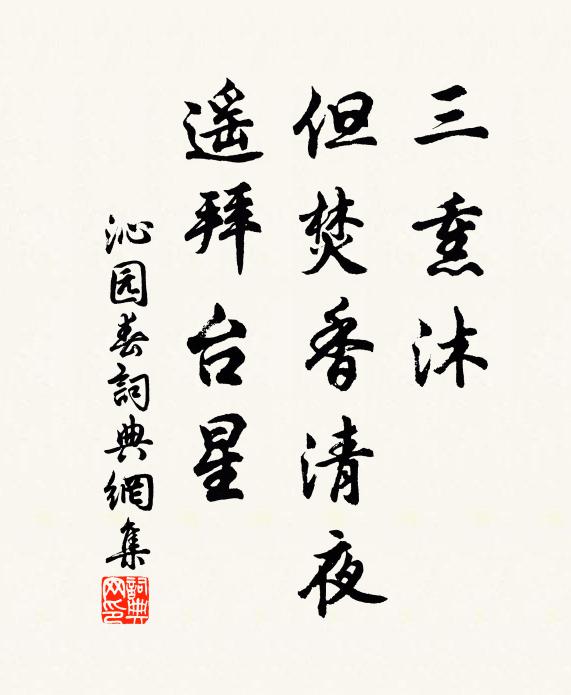 三熏沐
但焚香清夜
遥拜台星
沁园春詞典網集
詞典网印